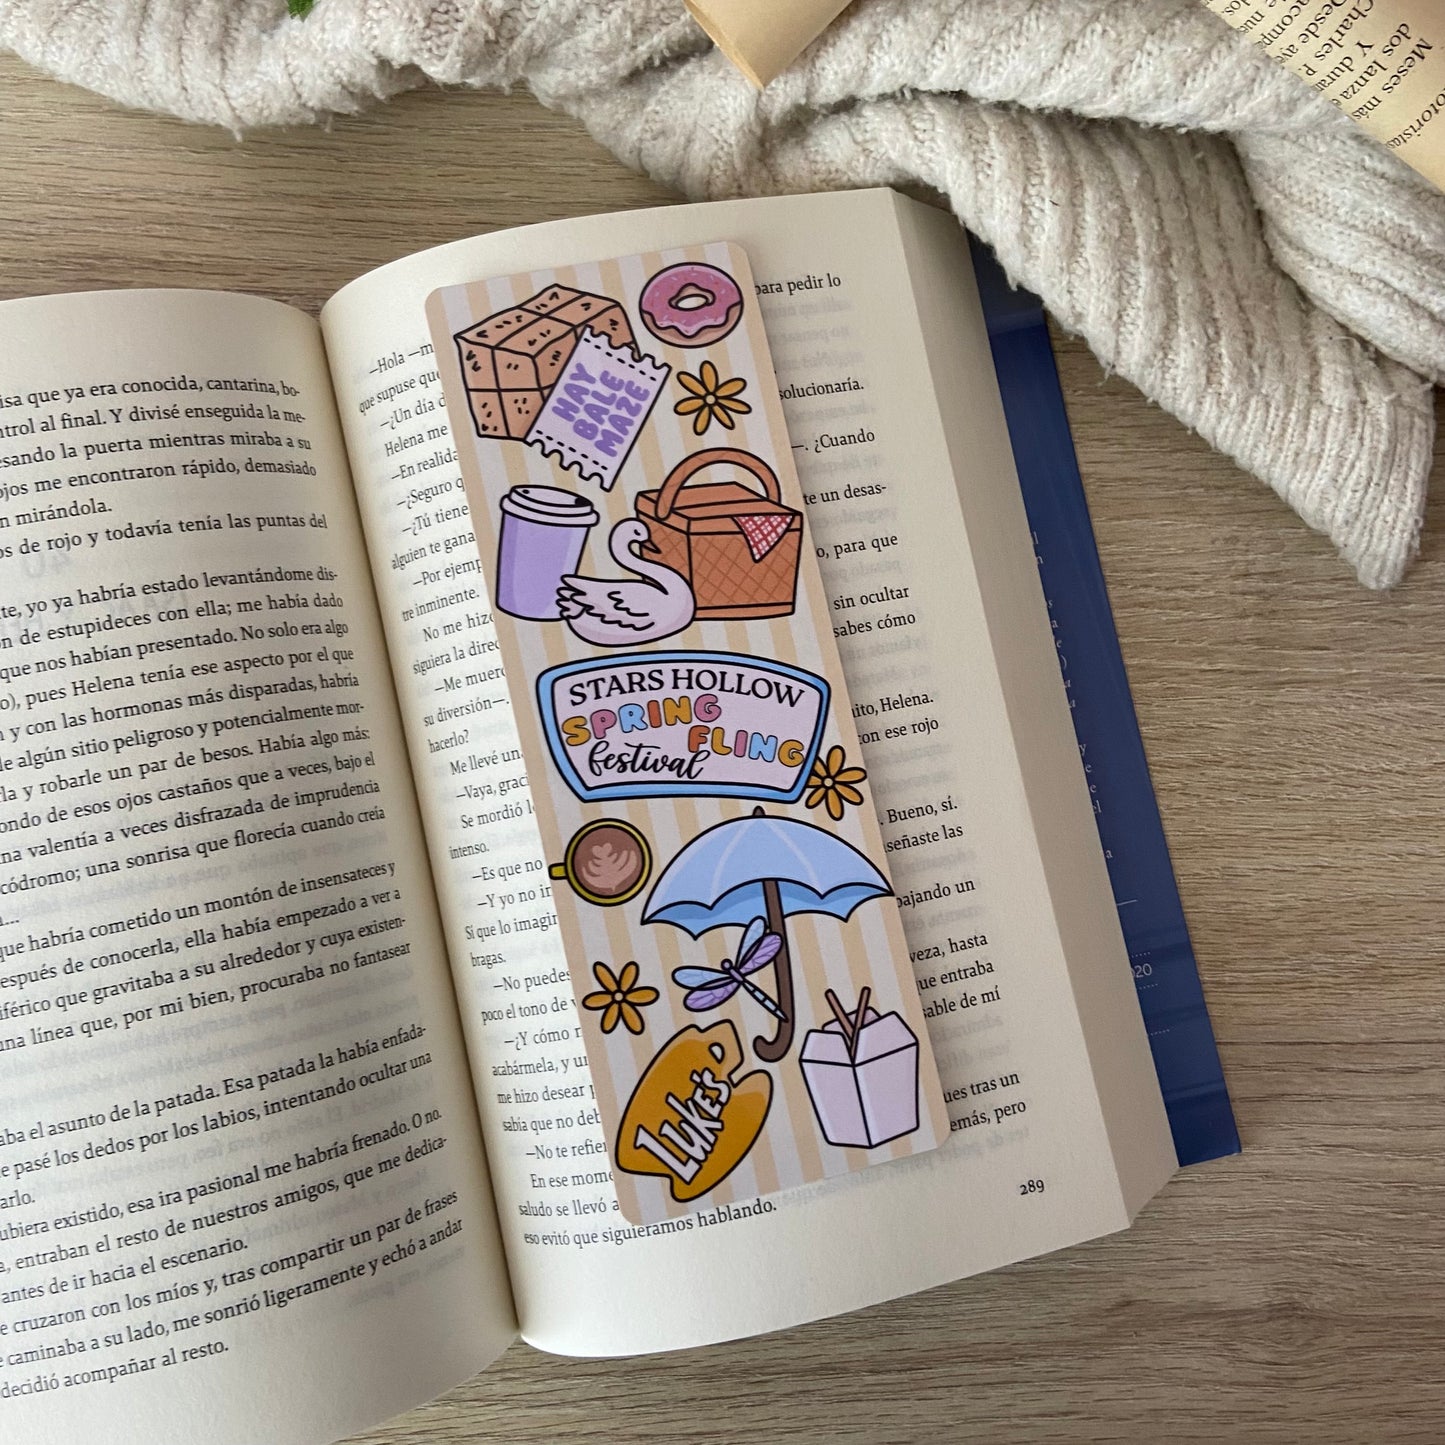 isa que ya era conocida, cantarina, bo-
ntrol al final. Y divisé enseguida la me-
esando la puerta mientras miraba a su
ojos me encontraron rápido, demasiado
n mirándola.
os de rojo y todavía tenía las puntas del
te, yo ya habría estado levantándome dis-
ón de estupideces con ella; me había dado
que nos habían presentado. No solo era algo
o), pues Helena tenía ese aspecto por el que
n y con las hormonas más disparadas, habría
le algún sitio peligroso y potencialmente mor-
rla y robarle un par de besos. Había algo más:
ondo de esos ojos castaños que a veces, bajo el
na valentía a veces disfrazada de imprudencia
códromo; una sonrisa que florecía cuando creía
que habría cometido un montón de insensateces y
después de conocerla, ella había empezado a ver a
iférico que gravitaba a su alrededor y cuya existen-
una línea que, por mi bien, procuraba no fantasear
aba el asunto de la patada. Esa patada la había enfada-
e pasé los dedos por los labios, intentando ocultar una
arlo.
ubiera existido, esa ira pasional me habría frenado. O no.
a, entraban el resto de nuestros amigos, que me dedica-
antes de ir hacia el escenario.
e cruzaron con los míos y, tras compartir un par de frases
e caminaba a su lado, me sonrió ligeramente y echó a andar
decidió acompañar al resto.
para pedir lo
—Hola —m
que supuse que
solucionaría.
—¿Un día d
Helena me
—. ¿Cuando
—En realida
te un desas-
—¿Seguro q
—¿Tú tiene
o, para que
alguien te gana
—Por ejemp
sin ocultar
tre inminente.
sabes cómo
No me hizo
siguiera la direc
—Me muero
nito, Helena.
su diversión—.
con ese rojo
hacerlo?
Me llevé un
—Vaya, graci
. Bueno, sí.
Se mordió l
señaste las
intenso.
—Es que no
bajando un
—Y yo no ir
Sí que lo imagir
veza, hasta
bragas.
que entraba
—No puedes
sable de mí
poco el tono de v
—¿Y cómo r
acabármela, y un
ues tras un
me hizo desear p
emás, pero
sabía que no deb
—No te refier
En ese mome
saludo se llevó a
eso evitó que siguiéramos hablando.
289
HAY
BALE
MAZE
STARS HOLLOW
SPRING
FLING
festival
LUKE'S
Meses más
dos. Y durar
Charles P.
Desde aye